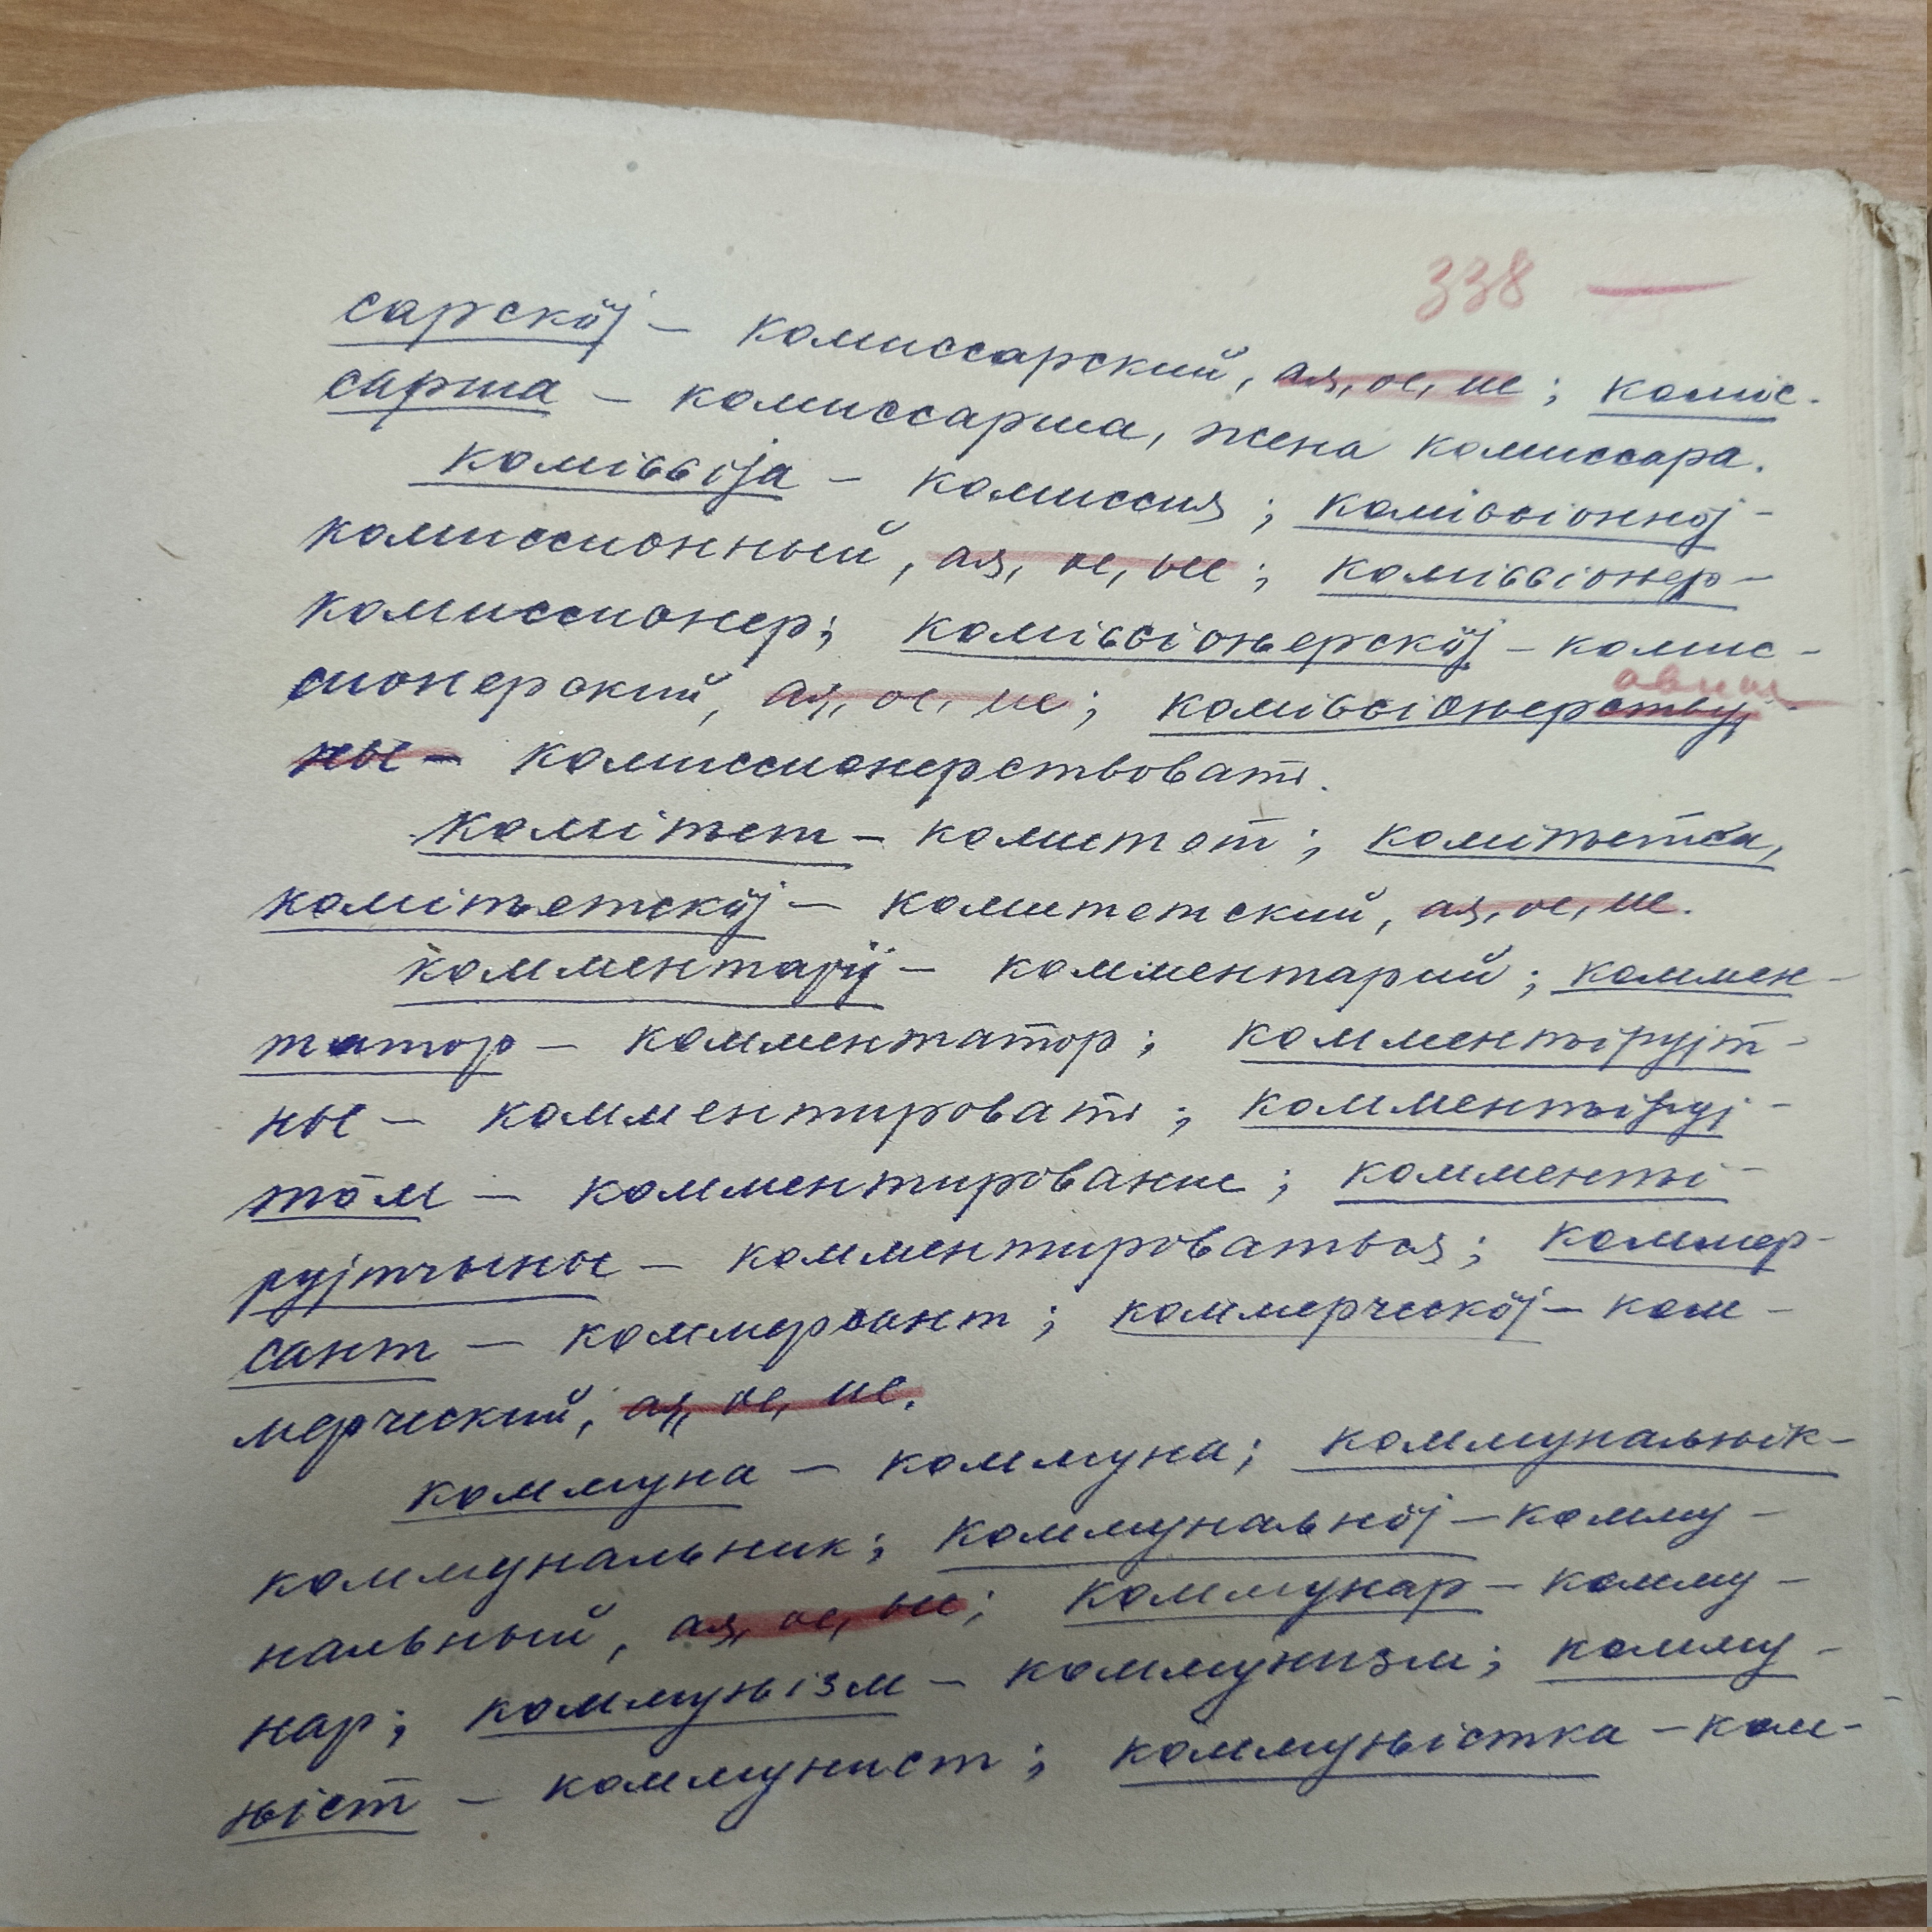 338 —
сарскӧј — комиссарский, ая, ое, ие; коміс-
сарша — комиссарша, жена комиссара.
коміԍԍіја — комиссия; коміԍԍіоннӧј —
комиссионный, ая, ое, ые; коміԍԍіонер —
комиссионер; коміԍԍіоԋерскӧј — комис-
сионерский, ая, ое, ие; коміԍԍіоԋерствуј-
ны — комиссионерствовать.
комітԍет — комитет; комітԍетса,
комітԍетскӧј — комитетский, ая, ое, ие.
комментаріј — комментарий; коммен-
татор — комментатор; комментірујт-
ны — комментировать; комментіруј-
тӧм — комментирование; комменті-
рујтчыны — комментироваться; коммер-
сант — коммерсант; коммерческӧј — ком-
мерческий, ая, ое, ие.
коммуна — коммуна; коммунальԋік —
коммунальник; коммунальнӧј — комму-
нальный, ая, ое, ые; коммунар — комму-
нар; коммуԋізм — коммунизм; комму-
ԋіст — коммунист; коммуԋістка — ком-